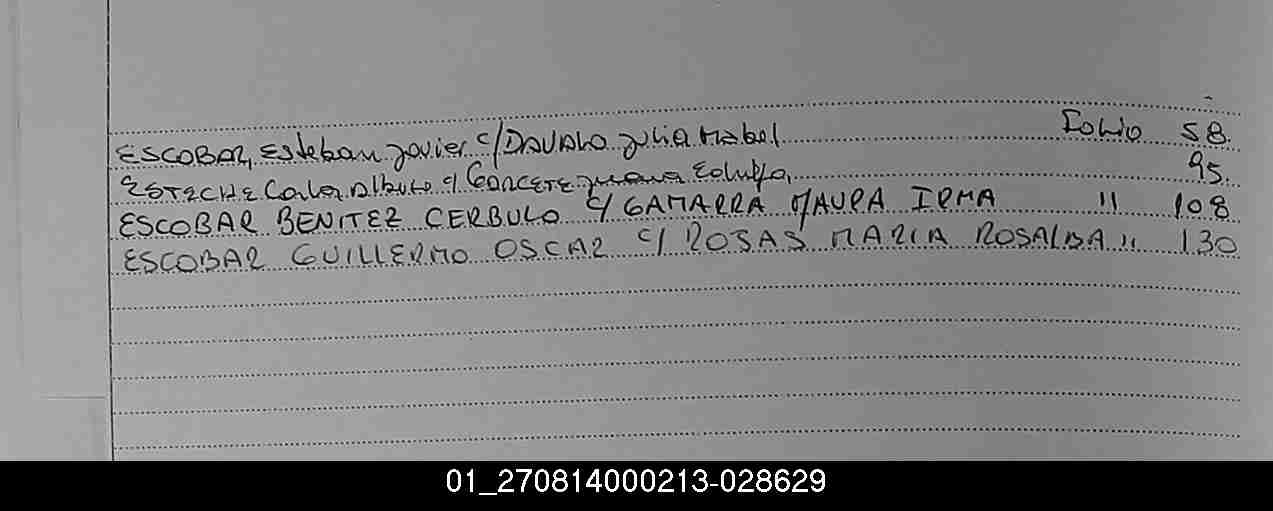 ESCOBAR, Esteban Javier c/ DAVALO Julia Mabel Folio 58.
ESTECHE Carlos Alberto c/ 95.
ESCOBAR BENITEZ CERBULO c/ GAMARRA MAURA IRMA " 108
ESCOBAR GUILLERMO OSCAR c/ ROSAS MARIA ROSALBA " 130
01_270814000213-028629